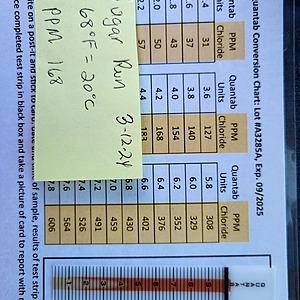 Quantab Conversion Chart: Lot #A3285A, Exp. 09/2025
Quantab Units PPM Chloride Quantab Units PPM Chloride Quantab Units PPM Chloride
31 3.6 127 5.8 308
37 3.8 140 6.0 329
1.8 43 4.0 154 6.2 352
2.0 50 4.2 168 6.4 376
2.2 57 4.4 183 6.6 402
6.8 430
459
7.2 491
7.4 526
7.6 564
7.8 606
Sugar Run 3-12-24
68°F = 20°C
PPM 168
ite on a post-it and stick to card
of sample, results of test strip
ce completed test strip in black box and take a picture of card to report with
QUANTAB
9
8
7
6
5
4
3
2
1